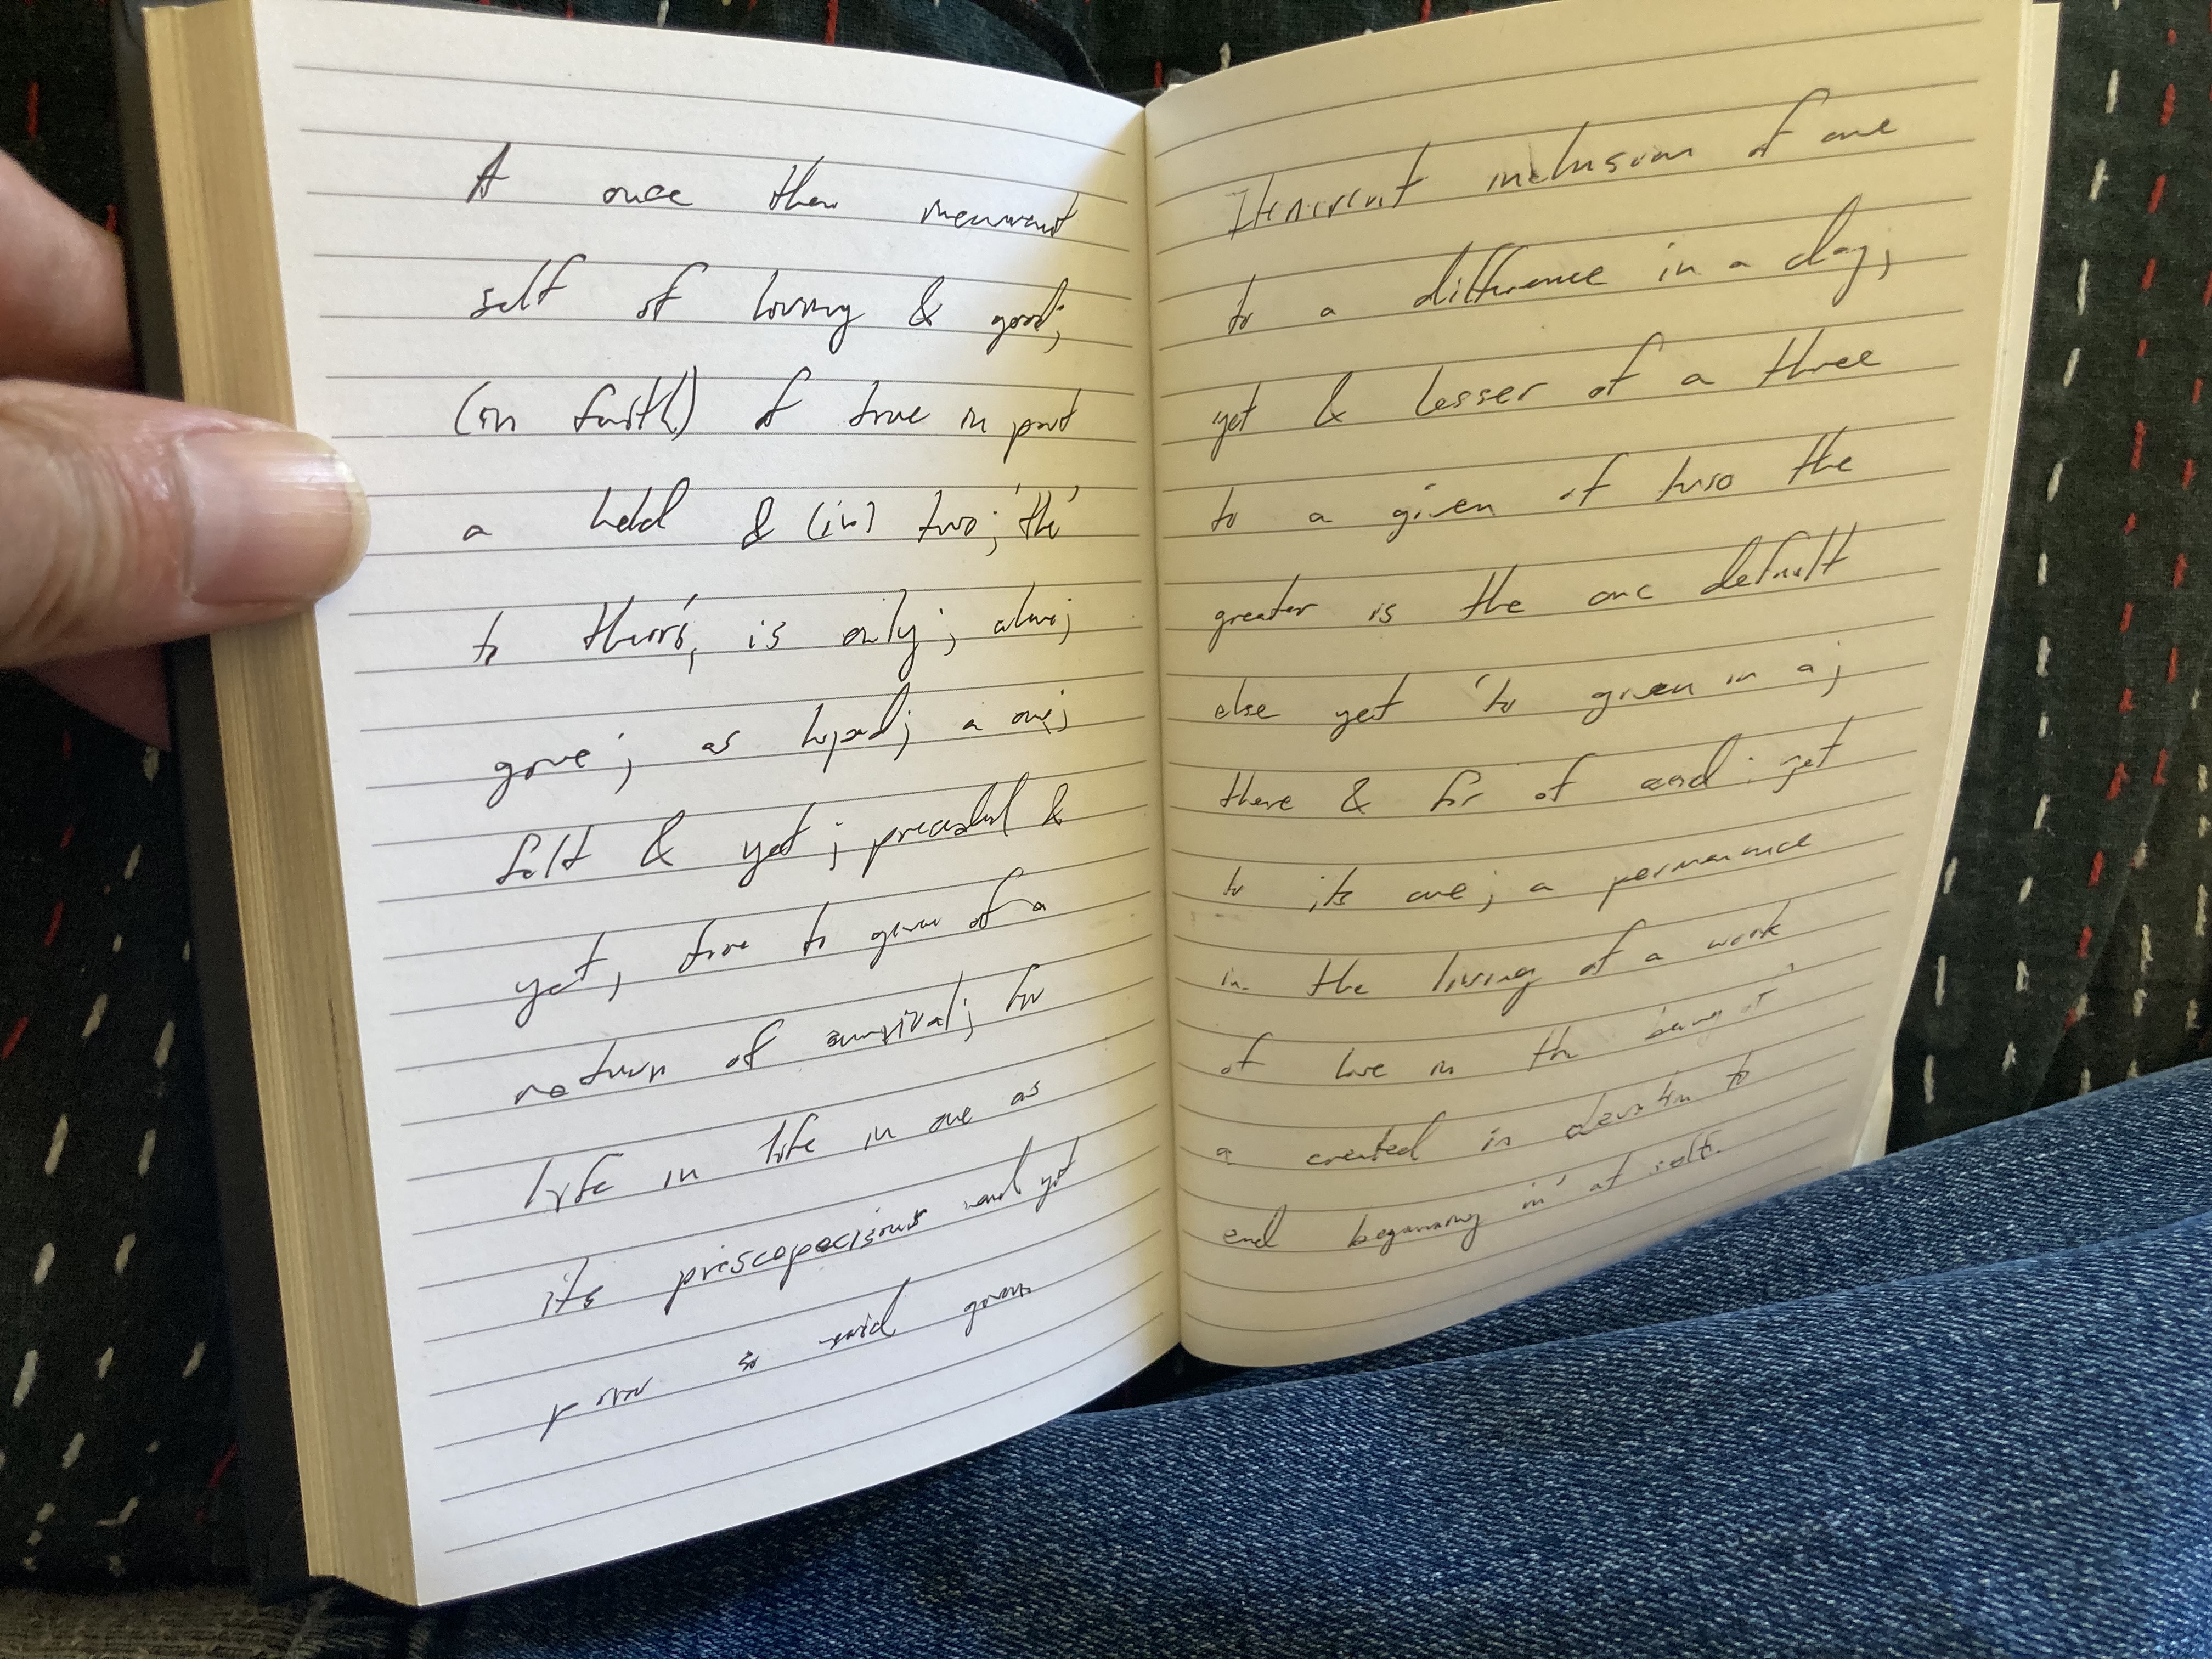 A once then
self of loving & good;
(in faith) of true in part
a held & (in) two; 'the'
to is only; alive;
gone; as a one;
felt & yet; preceded &
yet, true to given of a
return of survival; for
life in life in one as
its priscopecious and yet
so said given
inclusion of one
to a difference in a day;
yet & lesser of a three
to a given of two the
greater is the one default
else yet 'to given in a;
there & for of and: yet
to its one; a permanence
in the living of a work
of love in the being of
a created in devotion to
end beginning in' at self.